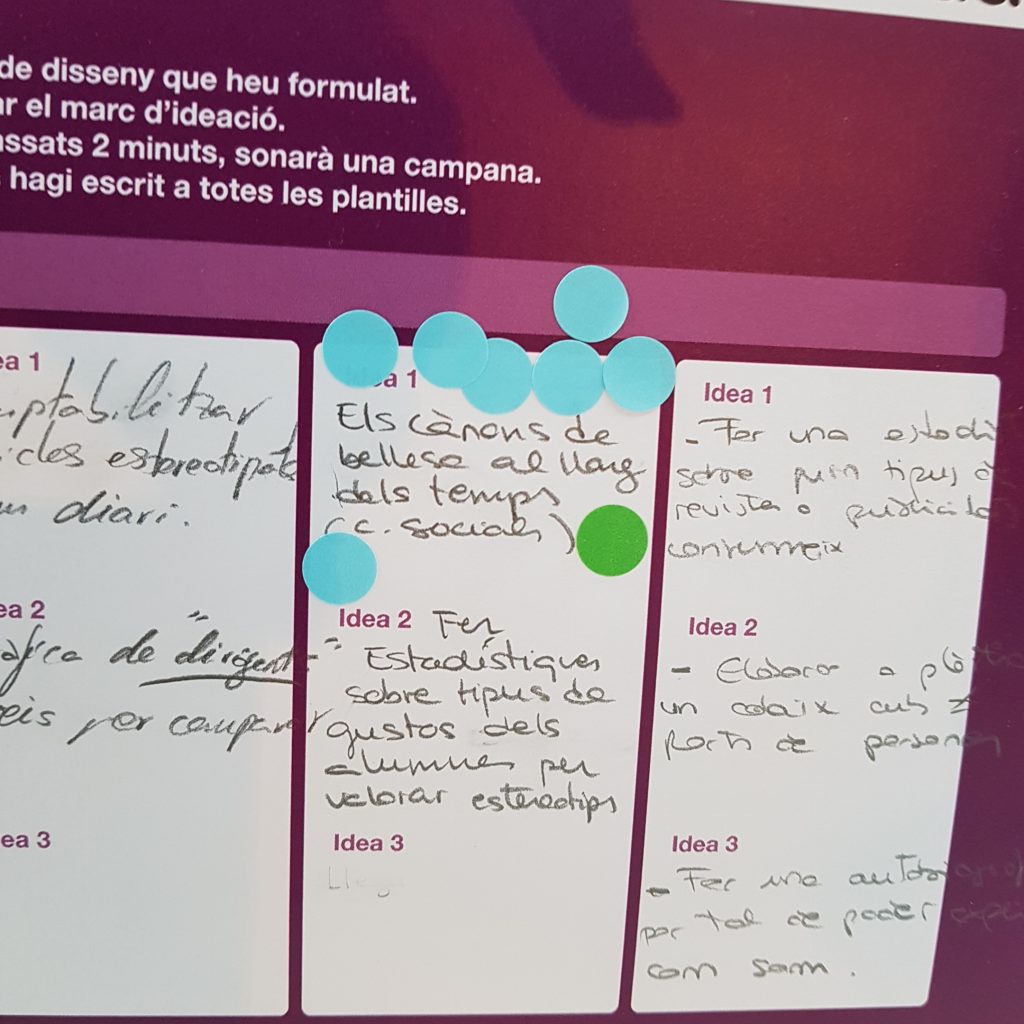 de disseny que heu formulat.
ar el marc d'ideació.
assats 2 minuts, sonarà una campana.
hagi escrit a totes les plantilles.
ea 1
ptabilitzar
cles estereotipats
un diari.
ea 2
àfica de "dirigent"
eis per comparar
ea 3
a 1
Els cànons de
bellesa al llarg
dels temps
(c. socials)
Idea 2 Fer
Estadístiques
sobre tipus de
gustos dels
alumnes per
valorar estereotips
Idea 3
Lleg
Idea 1
- Fer una estadi
sobre quin tipus d
revista o publicita
consumeix
Idea 2
- Elaborar a plàs
un calaix amb
parts de persones
Idea 3
- Fer una autobiogra
per tal de poder
com som.